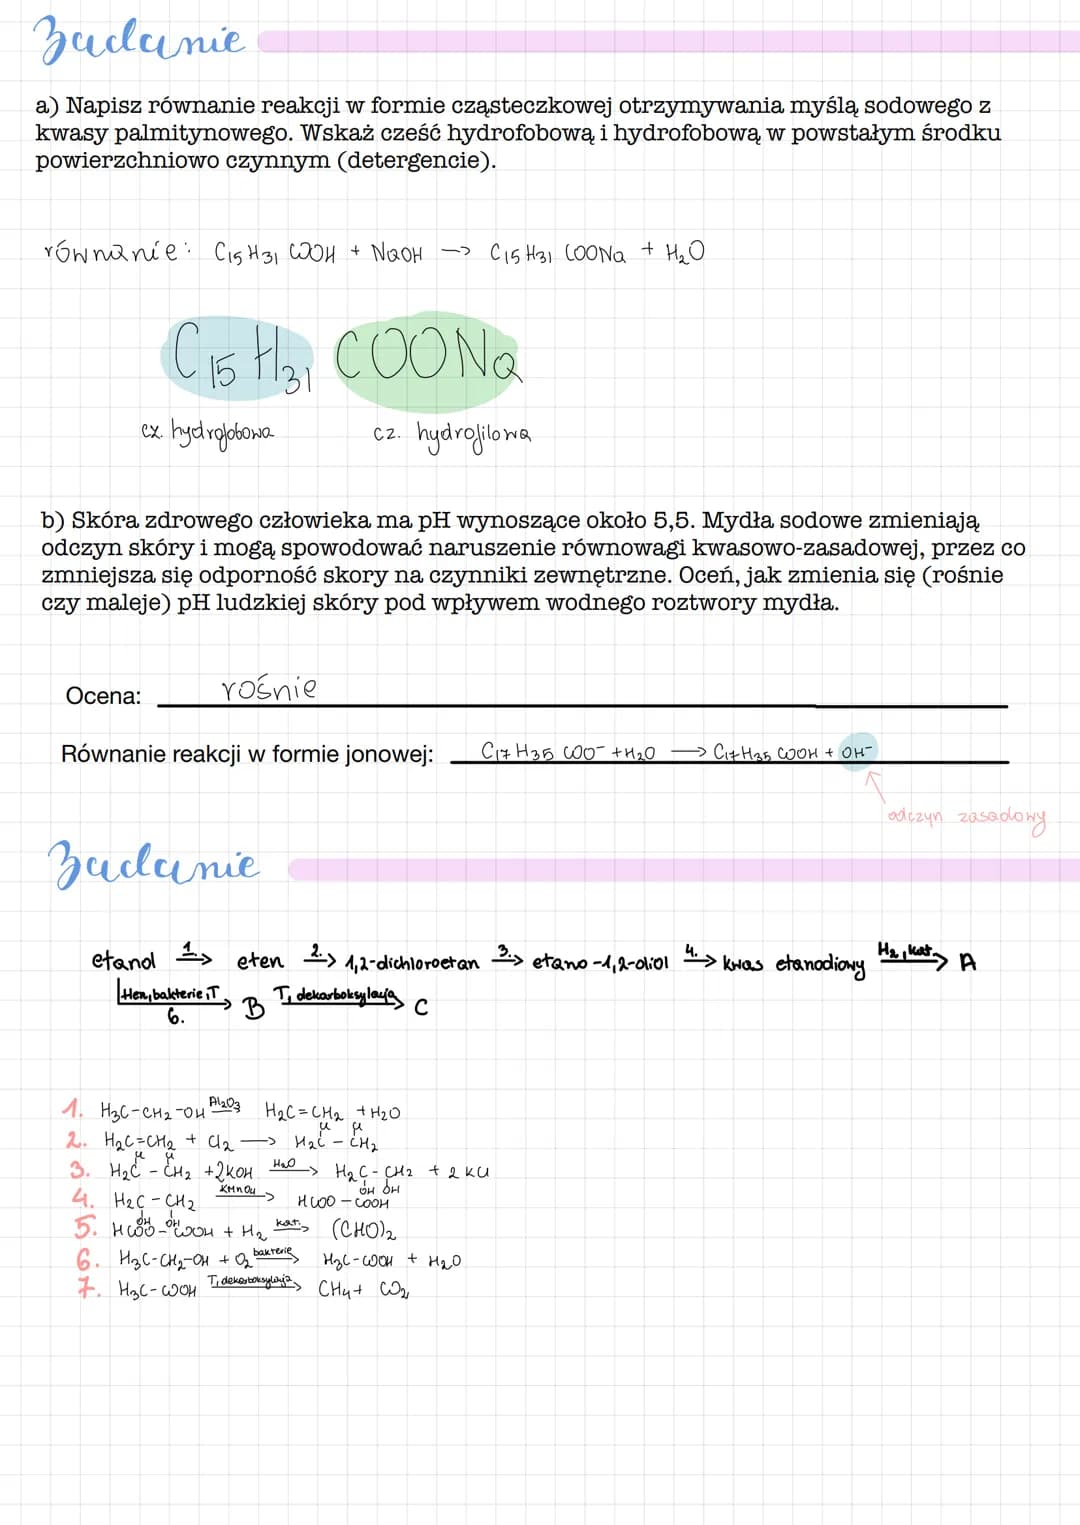 Zadanie
a) Napisz równanie reakcji w formie cząsteczkowej otrzymywania myślą sodowego z
kwasy palmitynowego. Wskaż cześć hydrofobową i hydrofobową w powstałym środku
powierzchniowo czynnym (detergencie).
równanie: C15H31COOH + NaOH → C15H31COONa + H2O
C15H31 COONa
cz. hydrofobowa cz. hydrofilowa
b) Skóra zdrowego człowieka ma pH wynoszące około 5,5. Mydła sodowe zmieniają
odczyn skóry i mogą spowodować naruszenie równowagi kwasowo-zasadowej, przez co
zmniejsza się odporność skory na czynniki zewnętrzne. Oceń, jak zmienia się (rośnie
czy maleje) pH ludzkiej skóry pod wpływem wodnego roztwory mydła.
Ocena: rośnie
Równanie reakcji w formie jonowej: C17H35COO⁻ + H2O → C17H35COOH + OH⁻
odczyn zasadowy
Zadanie
etanol 1.→ eten 2.→ 1,2-dichloroetan 3.→ etano-1,2-diol 4.→ kwas etanodiowy H2, kat.→ A
tlen, bakterie, T 6.→ B T, dekarboksylacja→ C
1. H3C-CH2-OH Al2O3 H2C=CH2 + H2O
2. H2C=CH2 + Cl2 → H2C-CH2
Cl Cl
3. H2C-CH2 + 2KOH H2O→ H2C-CH2 + 2KCl
Cl Cl OH OH
4. H2C-CH2 KMnO4→ HOOC-COOH
OH OH
5. HOOC-COOH + H2 kat.→ (CHO)2
6. H3C-CH2-OH + O2 bakterie→ H3C-COOH + H2O
7. H3C-COOH T, dekarboksylacja→ CH4 + CO2